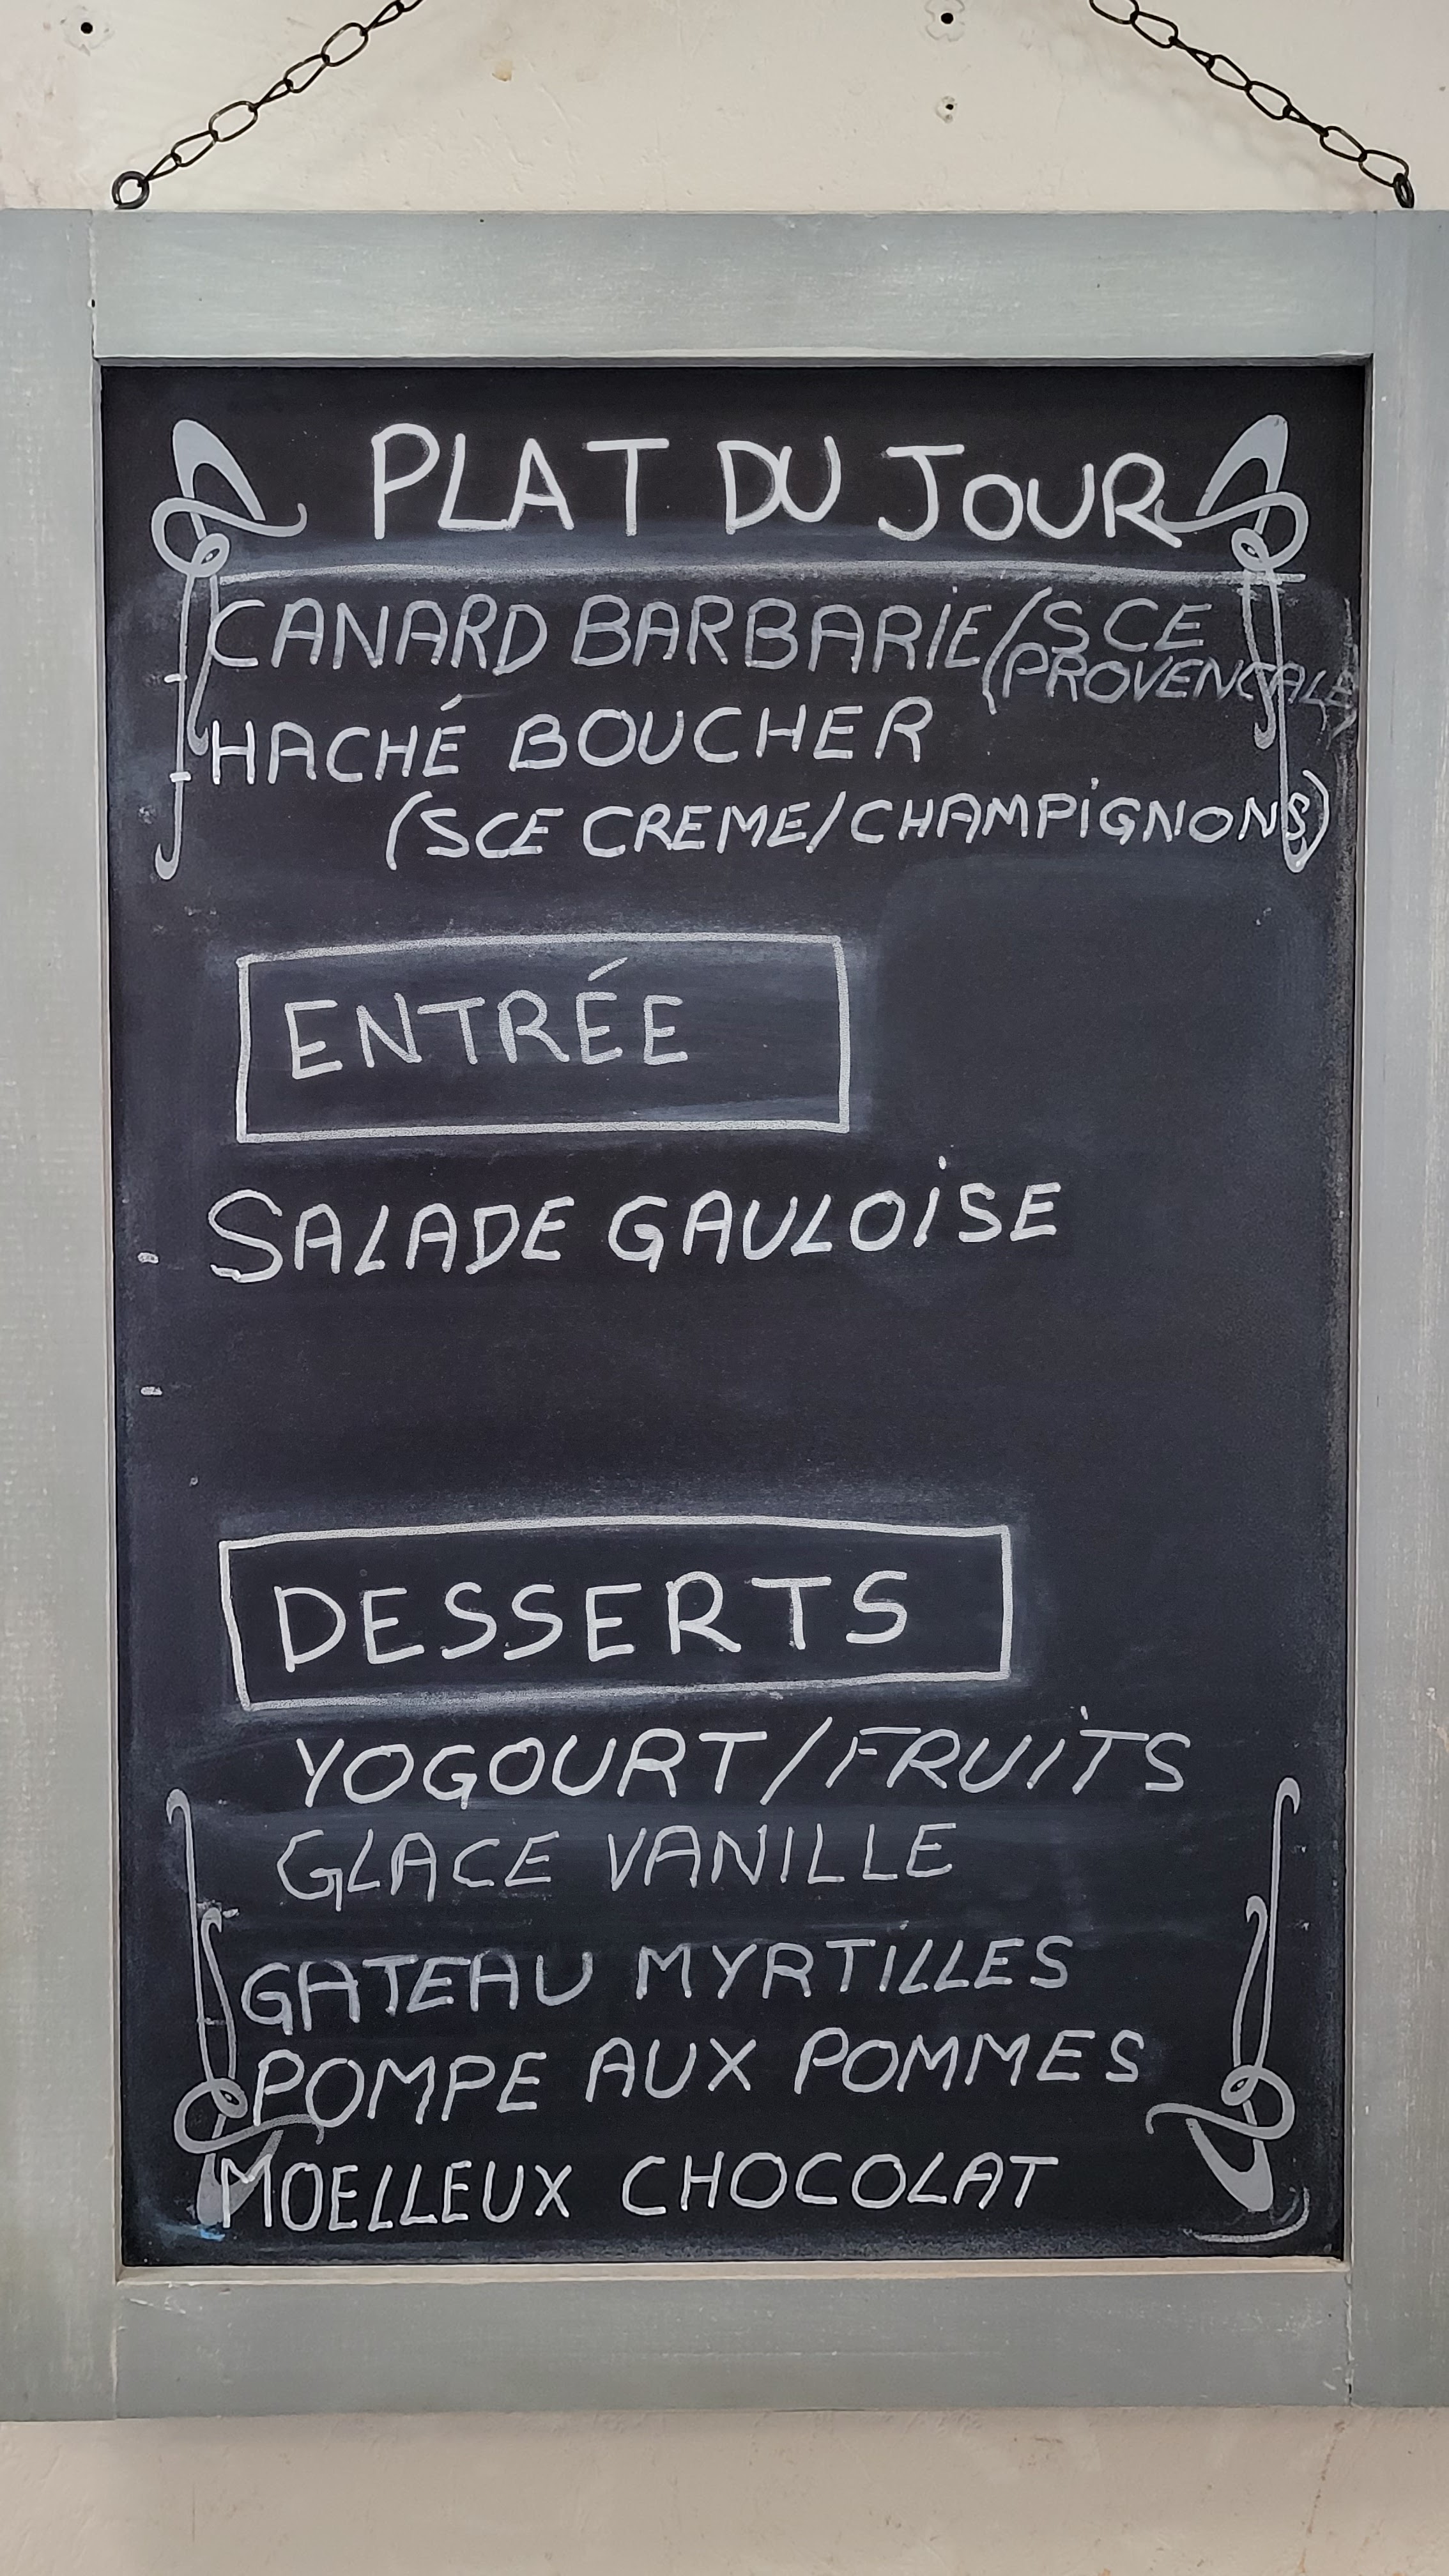 PLAT DU JOUR
CANARD BARBARIE/SCE
(PROVENCALE)
HACHÉ BOUCHER
(SCE CREME/CHAMPIGNONS)
ENTRÉE
SALADE GAULOISE
DESSERTS
YOGOURT/FRUITS
GLACE VANILLE
GATEAU MYRTILLES
POMPE AUX POMMES
MOELLEUX CHOCOLAT